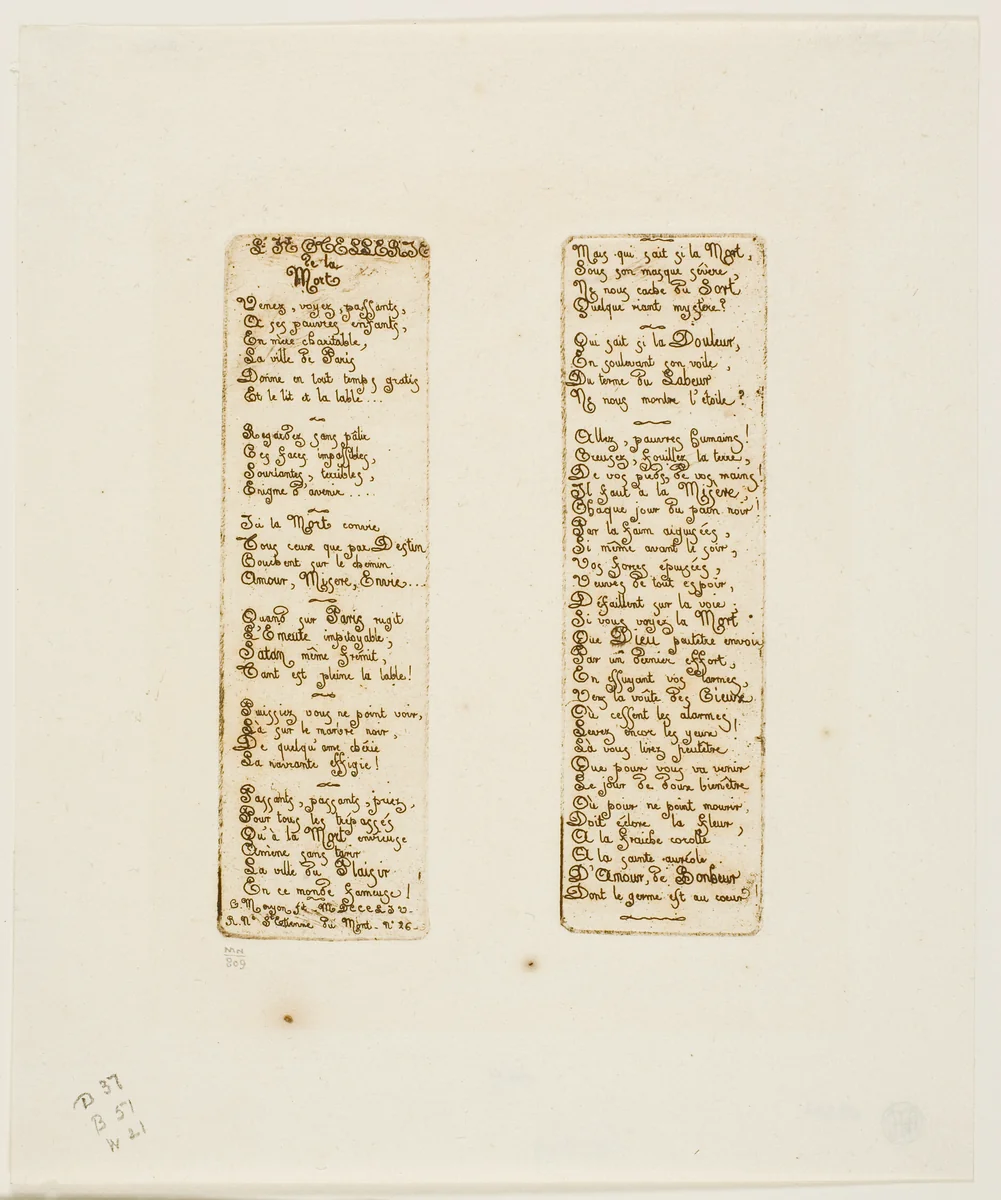 L'HOTELLERIE
de la
Mort
Venez, voyez, passants,
A ses pauvres enfants,
En mère charitable,
La ville de Paris
Donne en tout temps gratis
Et le lit et la table...
Regardez sans pâlir
Ces faces impassibles,
Souriantes, terribles,
Enigme d'avenir.....
Ici la Mort convie
Tous ceux que par Destin
Courbent sur le chemin
Amour, Misere, Envie...
Quand sur Paris rugit
L'Emeute impitoyable,
Satan même frémit,
Tant est pleine la table!
Puissiez vous ne point voir,
Là sur le marbre noir,
De quelqu'ame chérie
La navrante effigie!
Passants, passants, priez,
Pour tous les trépassés
Qu'à la Mort envieuse
Amène sans tarir
La ville du Plaisir
En ce monde fameuse!
C. Meryon ft MDCCCLIV-
R. Ne St Etienne du Mont - No 26-
Mais qui sait si la Mort,
Sous son masque sévère,
Ne nous cache du Sort
Quelque riant mystère?
Qui sait si la Douleur,
En soulevant son voile,
Du terme du Labeur
Ne nous montre l'étoile?
Allez, pauvres humains!
Creusez, fouillez la terre,
De vos pieds, de vos mains!
Il faut à la Misere,
Chaque jour du pain noir!
Par la faim aiguisées,
Si même avant le soir,
Vos forces épuisées,
Veuves de tout espoir,
Défaillent sur la voie,
Si vous voyez la Mort
Que Dieu peutêtre envoie
Par un dernier effort,
En essuyant vos larmes,
Vers la voûte des Cieux
Où cessent les alarmes,
Levez encore les yeux!
Là vous lirez peutêtre
Que pour vous va venir
Le jour de doux bienêtre
Où pour ne point mourir,
Doit éclore la fleur,
A la fraiche corolle
A la sainte auréole
D'Amour, de Bonheur
Dont le germe est au coeur!
MN
809
D 37
B 51
W 21